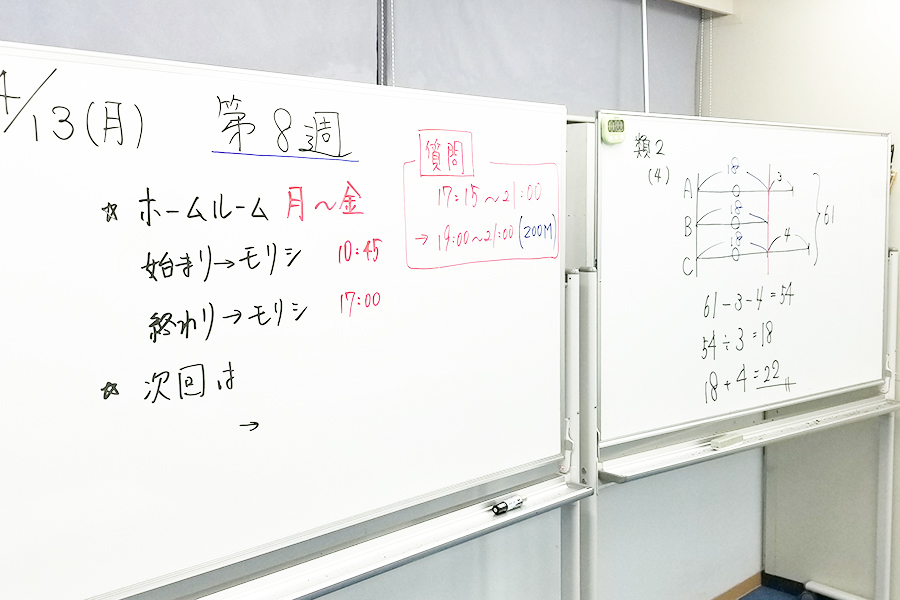 4/13(月) 第8週
☆ ホームルーム 月〜金
始まり→モリシ 10:45
終わり→モリシ 17:00
☆ 次回は
→
質問
17:15〜21:00
→ 19:00〜21:00(200M)
類2
(4)
18 3
A
18
B
18 4
C
61
61-3-4=54
54÷3=18
18+4=22